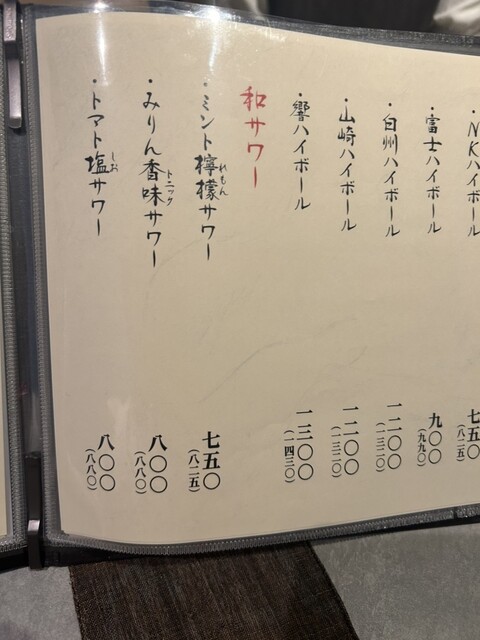 ・NKハイボール 七五〇
(八二五)
・富士ハイボール 九〇〇
(九九〇)
・白州ハイボール 一二〇〇
(一三二〇)
・山崎ハイボール 一二〇〇
(一三二〇)
・響ハイボール 一三〇〇
(一四三〇)
和サワー
・ミント檸檬サワー 七五〇
れもん
(八二五)
・みりん香味サワー 八〇〇
トニック
(八八〇)
・トマト塩サワー 八〇〇
しお
(八八〇)